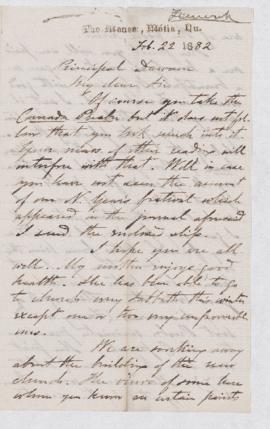 The Manse, Metis, Qu.
Feb. 22 1882
Principal Dawson
My dear Sir
Of course you take the
Canada Presb. but it does not fol
low that you look much into it.
Your mass of other reading will
interfere with that. Well in case
you have not seen the account
of our N. Years festival which
appeared in the journal aforesaid
I send the enclosed slip.
I hope you are all
well. My mother enjoys good
health. She has been able to go
to church every Sabbath this winter
except one or two very unfavorable
ones.
We are working away
about the building of the new
church. The views of some here
whom you know on certain points